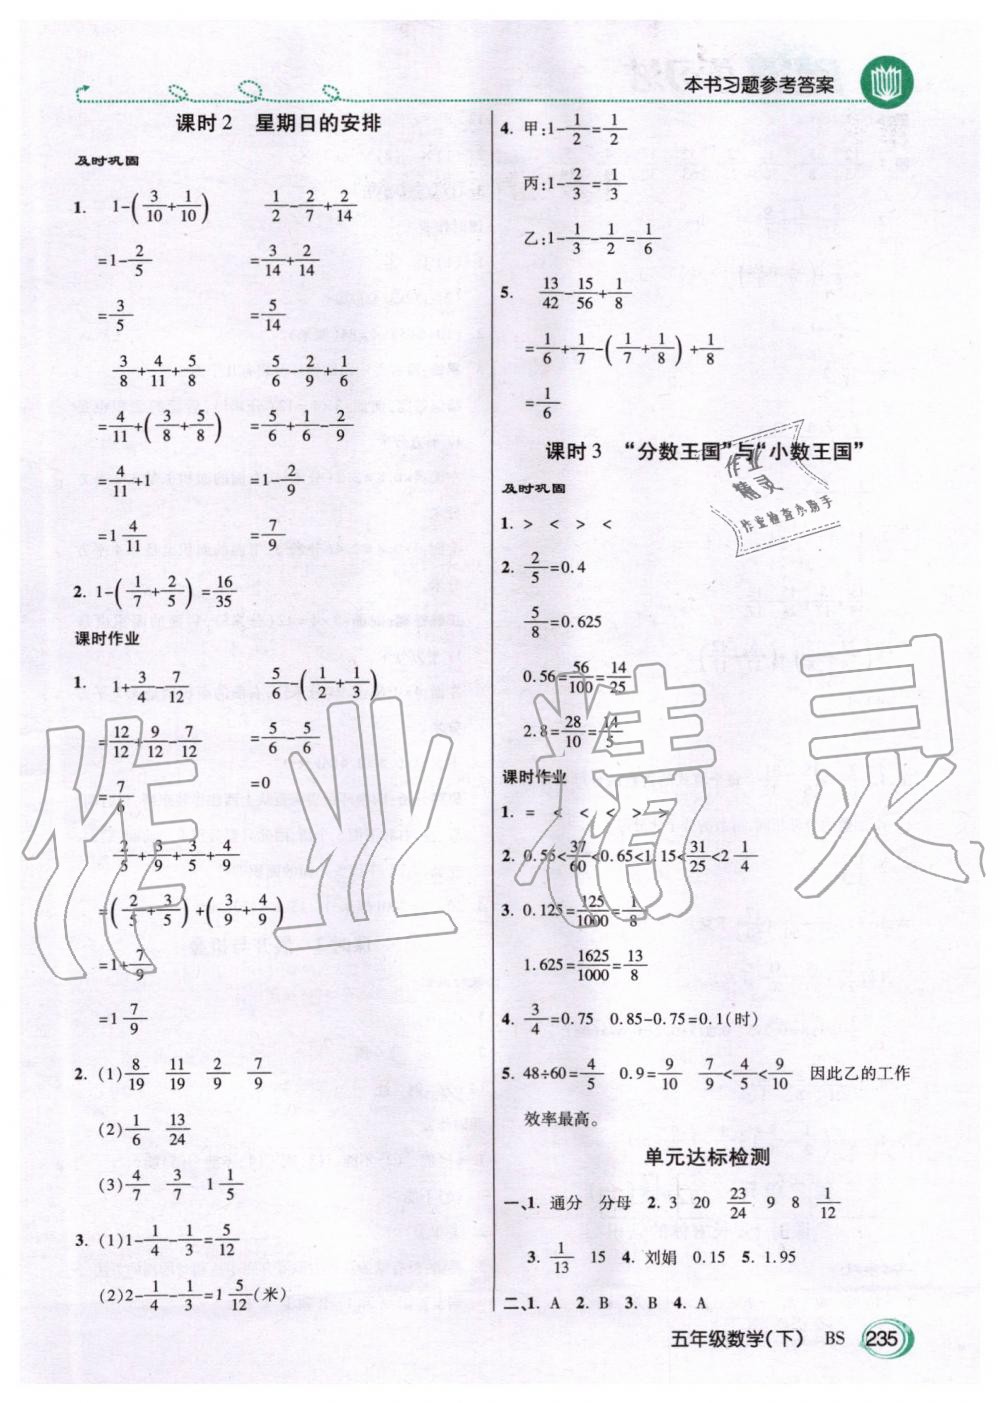 本书习题参考答案
课时2 星期日的安排
及时巩固
1. 1-(3/10+1/10)  1/2-2/7+2/14
=1-2/5  =3/14+2/14
=3/5  =5/14
3/8+4/11+5/8  5/6-2/9+1/6
=4/11+(3/8+5/8)  =5/6+1/6-2/9
=4/11+1  =1-2/9
=1 4/11  =7/9
2. 1-(1/7+2/5)=16/35
课时作业
1. 1+3/4-7/12  5/6-(1/2+1/3)
=12/12+9/12-7/12  =5/6-5/6
=7/6  =0
2/5+3/9+3/5+4/9
=(2/5+3/5)+(3/9+4/9)
=1+7/9
=1 7/9
2. (1)8/19 11/19 2/9 7/9
(2)1/6 13/24
(3)4/7 3/7 1 1/5
3. (1)1-1/4-1/3=5/12
(2)2-1/4-1/3=1 5/12(米)
4. 甲:1-1/2=1/2
丙:1-2/3=1/3
乙:1-1/3-1/2=1/6
5. 13/42-15/56+1/8
=1/6+1/7-(1/7+1/8)+1/8
=1/6
课时3 “分数王国”与“小数王国”
及时巩固
1. > < > <
2. 2/5=0.4
5/8=0.625
0.56=56/100=14/25
2.8=28/10=14/5
课时作业
1. = < < < > >
2. 0.55<37/60<0.65<1.15<31/25<2 1/4
3. 0.125=125/1000=1/8
1.625=1625/1000=13/8
4. 3/4=0.75 0.85-0.75=0.1(时)
5. 48÷60=4/5 0.9=9/10 7/9<4/5<9/10 因此乙的工作
效率最高。
单元达标检测
一、1. 通分 分母 2. 3 20 23/24 9 8 1/12
3. 1/13 15 4. 刘娟 0.15 5. 1.95
二、1. A 2. B 3. B 4. A
五年级数学(下) BS 235
作业
精灵
作业检查小助手
作业精灵